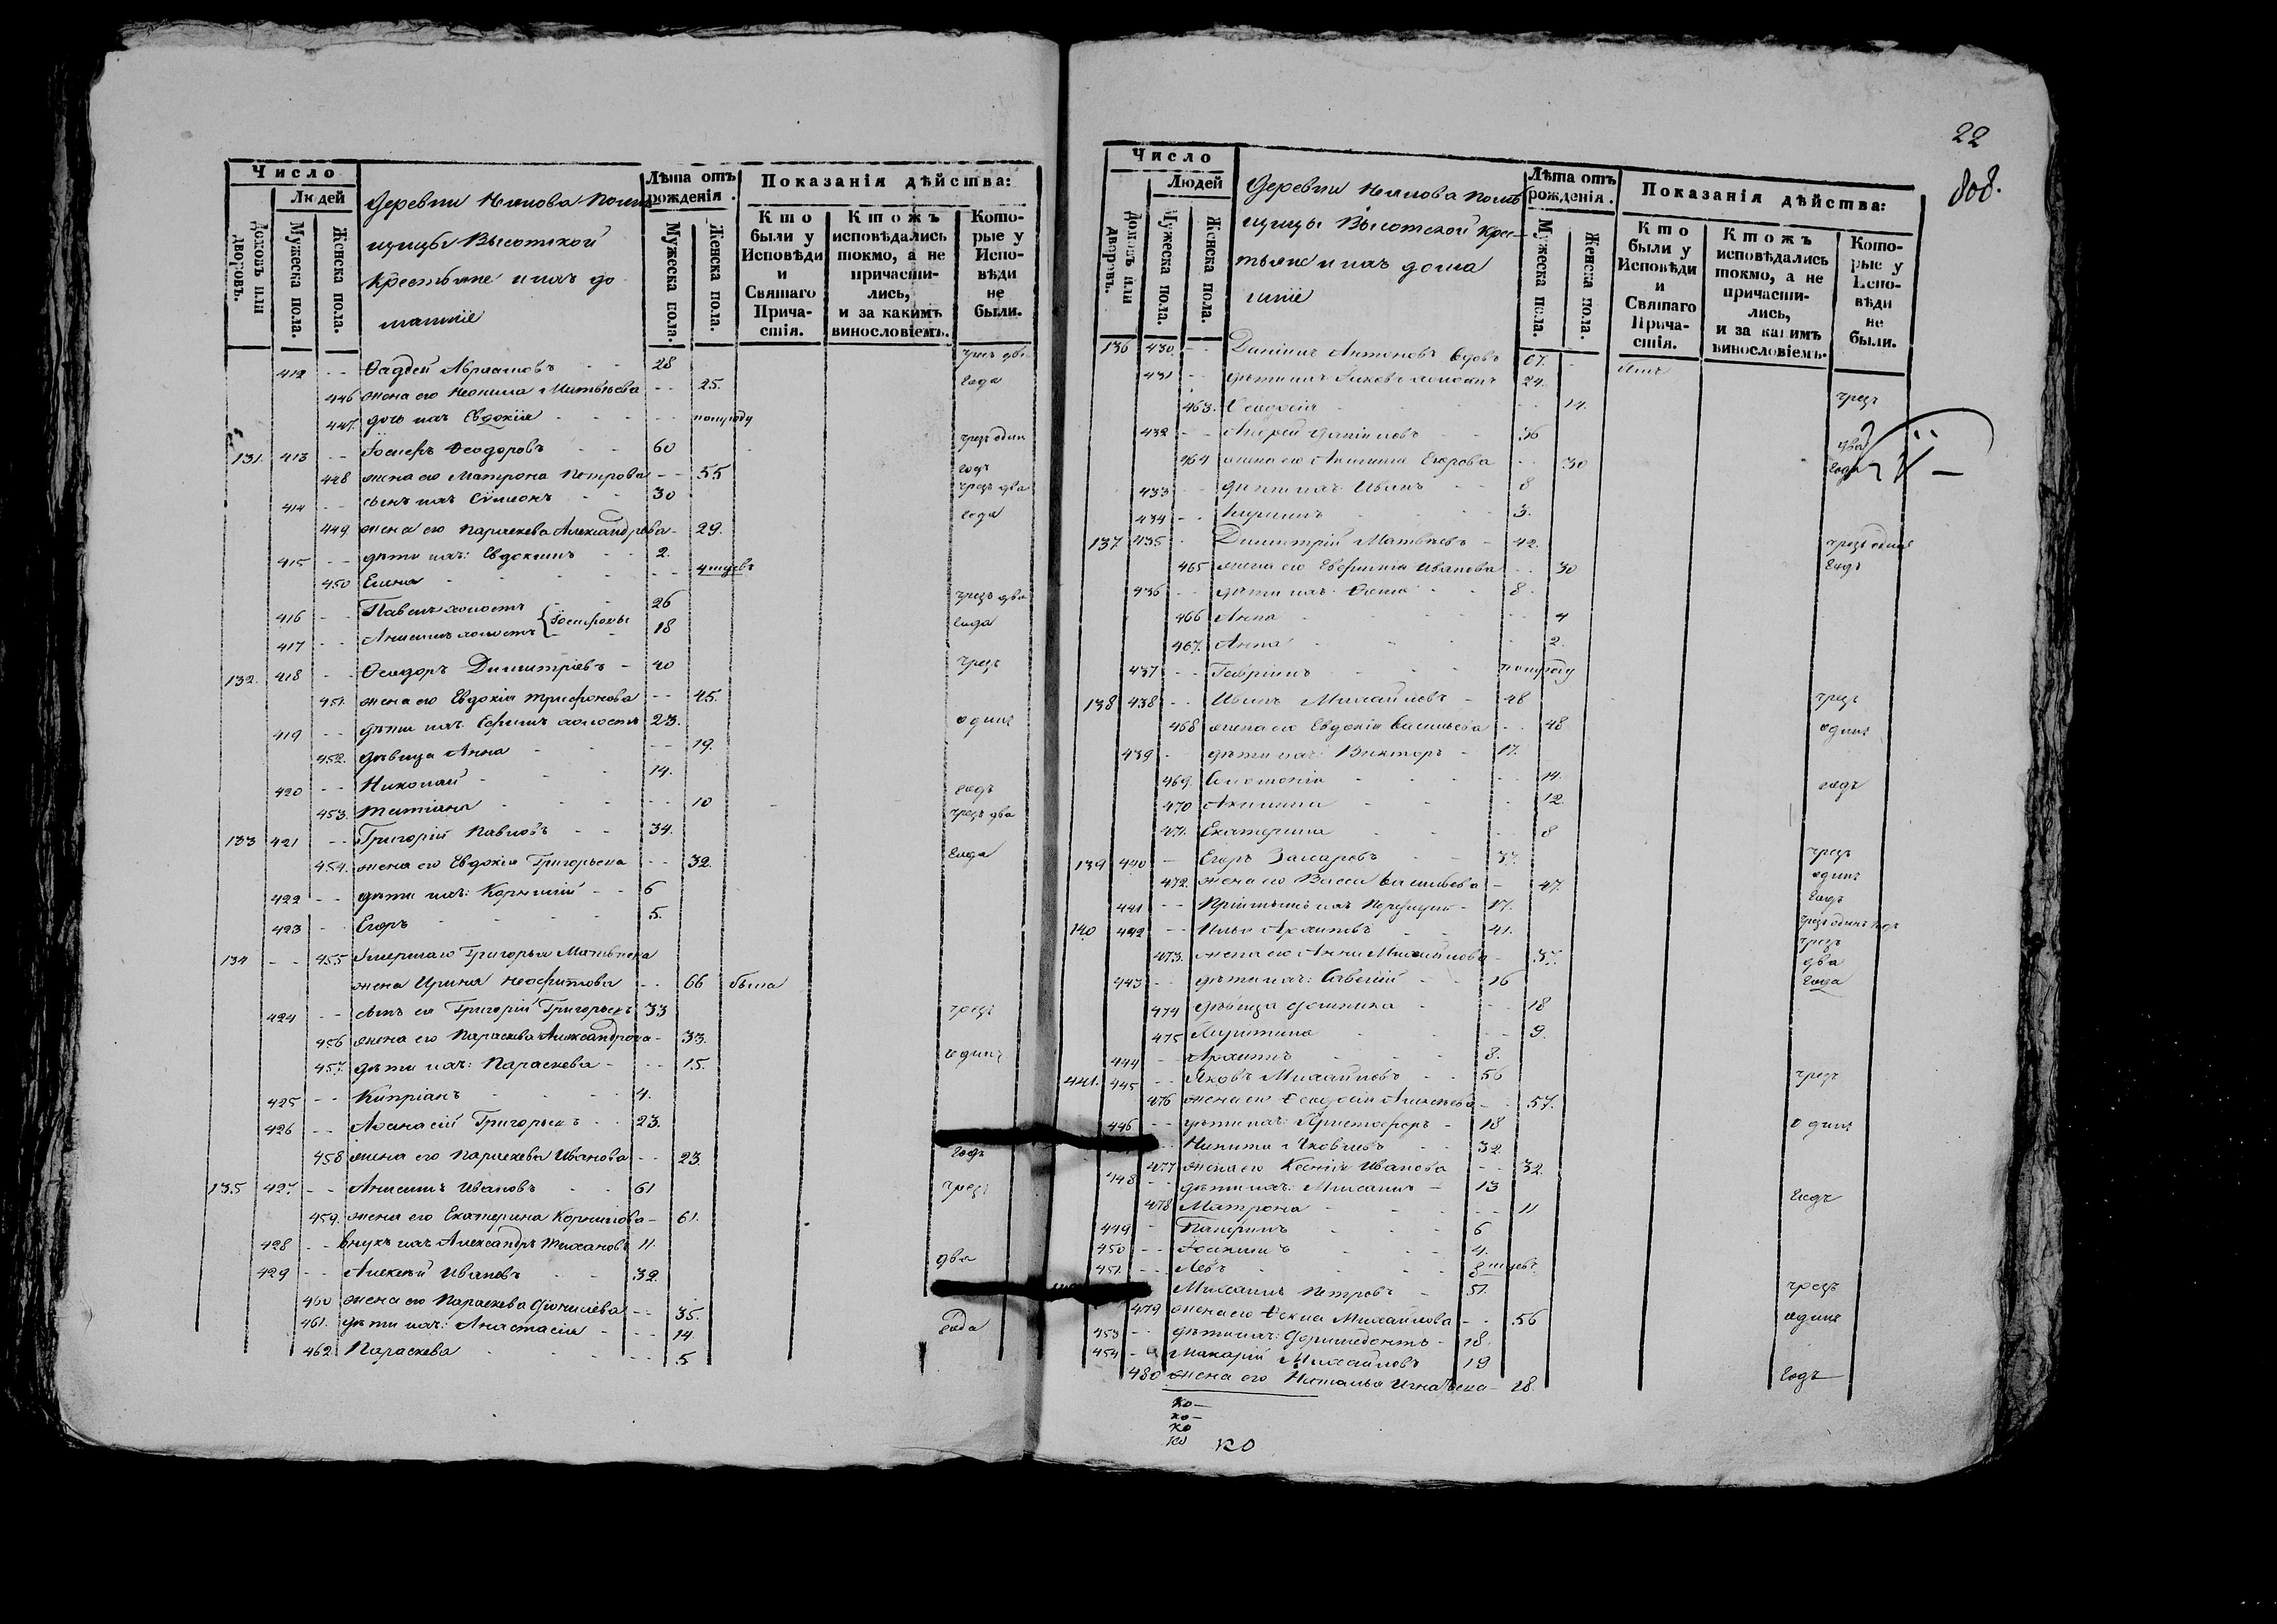 Число
Людей
домовъ или дворовъ.
Мужеска пола.
Женска пола.
Деревни Нилова помѣ
щицы Высотской
Крестьяне и ихъ до
машніе
Лѣта отъ рождения.
Мужеска пола.
Женска пола.
Показанія дѣйства:
Кто были у Исповѣди и Святаго Прича- стія.
Ктожъ исповѣдались токмо, а не причасти- лись, и за какимъ винословіемъ.
Кото- рые у Испо- вѣди не были.
412 -- Фадей Авраамовъ -- 28 чрезъ два
446 жена его Неонила Матвѣева -- 25. года
447. дочь ихъ Евдокія -- полугоду
131. 413 -- Іосифъ Феодоровъ -- 60 чрезъ одинъ
448 жена его Матрона Петрова -- 55 годъ
414 -- сынъ ихъ Сѷмеонъ -- 30 чрезъ два
449. жена его Параскева Александрова - 29. года
415 -- дѣти ихъ: Евдокимъ -- 2.
450 Елена -- 4 мцевъ
416 -- Павелъ холостъ 26 чрезъ два
417 -- Анисимъ холостъ { Іосифовы 18 года
132. 418 -- Феодоръ Димитріевъ - 40 чрезъ
451. жена его Евдокія Трифонова -- 45.
419 -- дѣти ихъ: Ефимъ холостъ 23. одинъ
452. дѣвица Анна -- 19.
420 -- Николай - 14. годъ
453. Татіана -- 10
133 421 -- Григорій Павловъ -- 34. чрезъ два
454. жена его Евдокія Григорьева -- 32. года
422 -- дѣти ихъ: Корнилій -- 6
423 -- Егоръ 5.
134 -- 455 Умершаго Григорья Матвѣева
жена Ирина Неофитова -- 66 была
424 -- сынъ ея Григорій Григорьевъ 33 чрезъ
456 жена его Параскева Александрова - 33.
457. дѣти ихъ: Параскева - -- 15. одинъ
425 -- Кипріанъ 4.
426 -- Афанасій Григорьевъ -- 23.
458 жена его Параскева Иванова -- 23. годъ
135 427. -- Анисимъ Ивановъ -- 61 чрезъ
459. жена его Екатерина Корнилова - 61.
428 -- внукъ ихъ Александръ 11.
429 -- Алексѣй Ивановъ -- 32. два
460 жена его Параскева -- 35.
461. дѣти ихъ: Анастасія - -- 14. года
462. Параскева -- 5
22
808.
Число
Людей
домовъ или дворовъ.
Мужеска пола.
Женска пола.
Деревни Нилова помѣ
щицы Высотской Крес-
тьяне и ихъ дома
шніе
Лѣта отъ рождения.
Мужеска пола.
Женска пола.
Показанія дѣйства:
Кто были у Исповѣди и Святаго Прича- стія.
Ктожъ исповѣдались токмо, а не причасти- лись, и за какимъ винословіемъ.
Кото- рые у Испо- вѣди не были.
136 430 -- Даніилъ Антоновъ вдовъ 67.
431 -- дѣти ихъ: холостъ 24. чрезъ
463. Феодосія -- 14.
432 -- Андрей Даніиловъ -- 36 два
464 жена его Акилина Егорова -- 30 года
433 -- дѣти ихъ: Иванъ -- 8
434 -- Кириллъ -- 3.
137. 435 - Димитрій Матвѣевъ - 42. чрезъ одинъ
465 жена его Евфимія Иванова -- 30 годъ
436 -- дѣти ихъ: Фома -- 8.
466 Анна 4
467. Анна - 2.
437 -- Гавріилъ полугоду
138 438 -- Михайловъ - 48 чрезъ
468 жена его Евдокія Васильева -- 48. одинъ
439 - дѣти ихъ: Викторъ - 17.
469. Соломонія -- 14. годъ
470 Акилина - 12.
471. Екатерина 8
139 440 -- Егоръ Захаровъ -- 37. чрезъ
472. жена его Васса Васильева - 47. одинъ
441 -- Пріемышъ ихъ Порфирій - 17. годъ
140 442 -- Илья Архиповъ -- 41. чрезъ одинъ годъ
473. жена его Анна Михайлова - 37. чрезъ
443 -- дѣти ихъ: Савелій -- 16 два
474 дѣвица Домника -- 18 года
475 -- 9.
444 -- Архипъ 8.
141. 445 -- Яковъ Михайловъ -- 56 чрезъ
476 жена его Феодосія Алексѣева - 57.
446 -- дѣти ихъ: Христофоръ - 18 одинъ
Никита Яковлевъ -- 32
477 жена его Ксенія Иванова -- 32.
448 -- дѣти ихъ: Михаилъ - 13 годъ
478 Матрона -- 11
449 - 6
450 -- Іоакимъ 4.
451. -- Левъ 8 мцевъ
Михаилъ Петровъ - 51. чрезъ
479 жена его Фекла Михайлова -- 56 одинъ
453 -- дѣти ихъ: Дормидонтъ - 18.
454 -- Макарій Михайловъ 19
480 жена его Наталья Игнатьева - 28. годъ
ко-
ко-
ко
ко ко